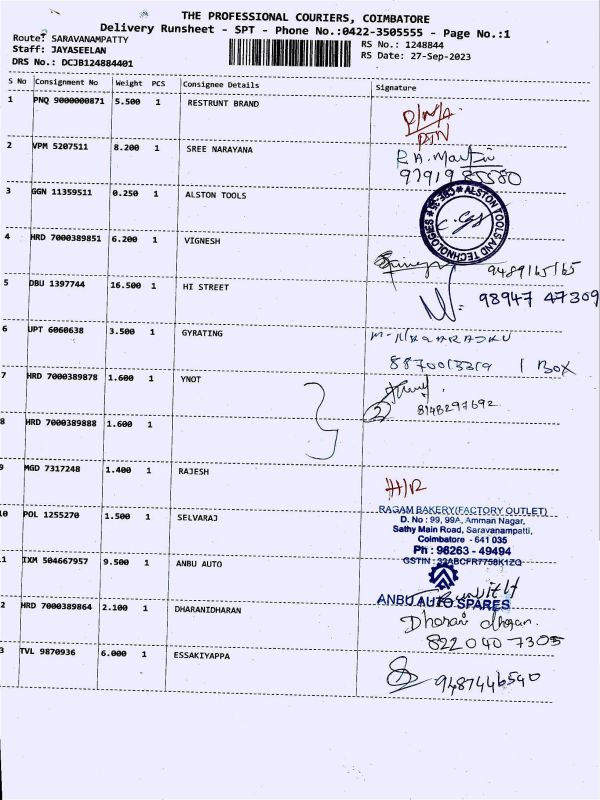 THE PROFESSIONAL COURIERS, COIMBATORE
Delivery Runsheet - SPT - Phone No.:0422-3505555 - Page No.:1
Route: SARAVANAMPATTY
Staff: JAYASEELAN
DRS No.: DCJB124884401
RS No.: 1248844
RS Date: 27-Sep-2023
S No Consignment No Weight PCS Consignee Details Signature
1 PNQ 9000000871 5.500 1 RESTRUNT BRAND
2 VPM 5207511 8.200 1 SREE NARAYANA
9791985580
3 GGN 11359511 0.250 1 ALSTON TOOLS
ALSTON TOOLS AND TECHNOLOGIES
4 HRD 7000389851 6.200 1 VIGNESH
9489165165
5 DBU 1397744 16.500 1 HI STREET
98947 47309
6 UPT 6060638 3.500 1 GYRATING
8870013319 1 BOX
7 HRD 7000389878 1.600 1 YNOT
2 8148297692
8 HRD 7000389888 1.600 1
9 MGD 7317248 1.400 1 RAJESH
10 POL 1255270 1.500 1 SELVARAJ
RAGAM BAKERY(FACTORY OUTLET)
D. No : 99, 99A, Amman Nagar,
Sathy Main Road, Saravanampatti,
Coimbatore - 641 035
Ph : 96263 - 49494
GSTIN : 33ABCFR7758K1ZQ
1 IXM 504667957 9.500 1 ANBU AUTO
ANBU AUTO SPARES
2 HRD 7000389864 2.100 1 DHARANIDHARAN
Dharani dharan.
822040 7305
3 TVL 9870936 6.000 1 ESSAKIYAPPA
9487446540